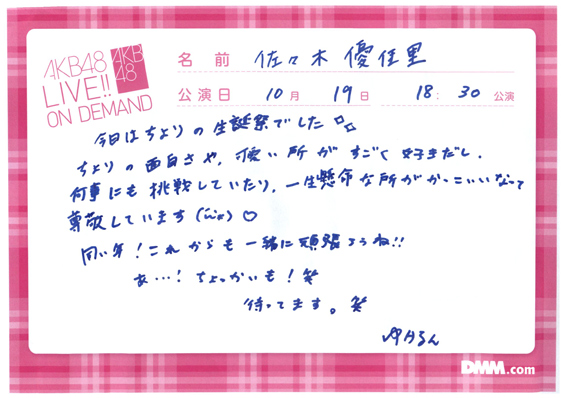 AKB48
LIVE!!
ON DEMAND
AKB
48
名前 佐々木 優佳里
公演日 10月 19日 18:30公演
今日はちよりの生誕祭でした
ちよりの面白さや、優しい所がすごく好きだし、
何事にも挑戦していたり、一生懸命な所がかっこいいなって
尊敬しています
同い年!これからも一緒に頑張ろうね!!
あ…!ちょっかいも!笑
待ってます。笑
ゆかるん
DMM.com